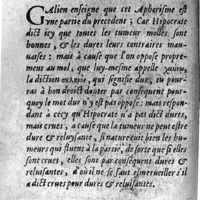 GAlien enseigne que cest Aphorisme est
vne partie du precedent ; Car Hipocrate
dict icy que toutes les tumeur molles sont
bonnes , & les dures leurs contraires mau-
uaises : mais à cause que l'on oppose propre-
ment au mol, que luy-mesme appelle
la diction qui signifie dur, tu pour-
ras à bon droict douter par consequent pour-
quoy le mot dur n'y est pas opposé : mais respondant
à cecy qu'Hipocrate n'a pas dict dures,
mais crues , a cause que la tumeur ne peut estre
dure & reluysante , si naturecuit bien les hu-
meurs qui fluent à la partie, de sorte que si elles
sont crues , elles sont par consequent dures &
reluisantes, d'où il ne se faut esmerueiller s'il
a dict crues pour dures & reluisantes.